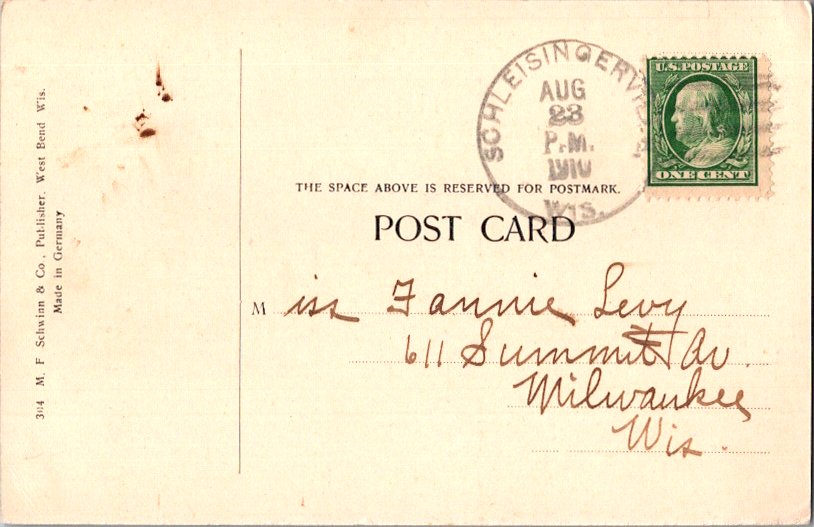 304 M. F. Schwinn & Co., Publisher, West Bend Wis.
Made in Germany
SCHLEISINGERVILLE,
AUG
23
P.M.
1910
WIS.
U.S. POSTAGE
ONE CENT
THE SPACE ABOVE IS RESERVED FOR POSTMARK.
POST CARD
Miss Fannie Levy
611 Summit Av.
Milwaukee
Wis.